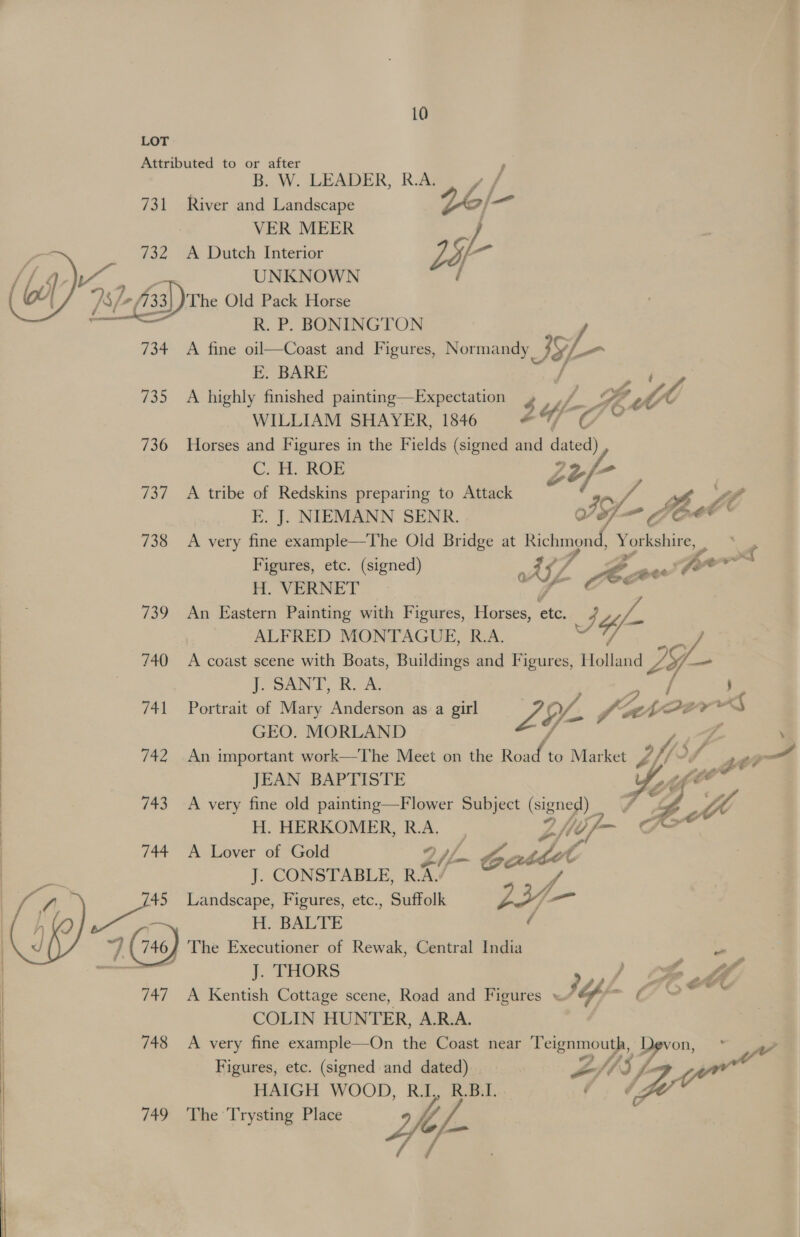 10
LOT
Attributed to or after
B. W. LEADER, R.A.
731 River and Landscape
VER MEER
732 A Dutch Interior 25/-
UNKNOWN
733 The Old Pack Horse
R. P. BONINGTON
734 A fine oil—Coast and Figures, Normandy 35/-
E. BARE
735 A highly finished painting—Expectation
WILLIAM SHAYER, 1846
736 Horses and Figures in the Fields (signed and dated)
C. H. ROE 22/-
737 A tribe of Redskins preparing to Attack
E. J. NIEMANN SENR.
738 A very fine example—The Old Bridge at Richmond, Yorkshire,
Figures, etc. (signed)
H. VERNET
739 An Eastern Painting with Figures, Horses, etc.
ALFRED MONTAGUE, R.A.
740 A coast scene with Boats, Buildings and Figures, Holland
J. SANT, R. A.
741 Portrait of Mary Anderson as a girl
GEO. MORLAND
742 An important work—The Meet on the Road to Market
JEAN BAPTISTE
743 A very fine old painting—Flower Subject (signed)
H. HERKOMER, R.A.
744 A Lover of Gold
J. CONSTABLE, R.A.
745 Landscape, Figures, etc., Suffolk
H. BALTE
746 The Executioner of Rewak, Central India
J. THORS
747 A Kentish Cottage scene, Road and Figures
COLIN HUNTER, A.R.A.
748 A very fine example—On the Coast near Teignmouth, Devon,
Figures, etc. (signed and dated)
HAIGH WOOD, R.I., R.B.I.
749 The Trysting Place